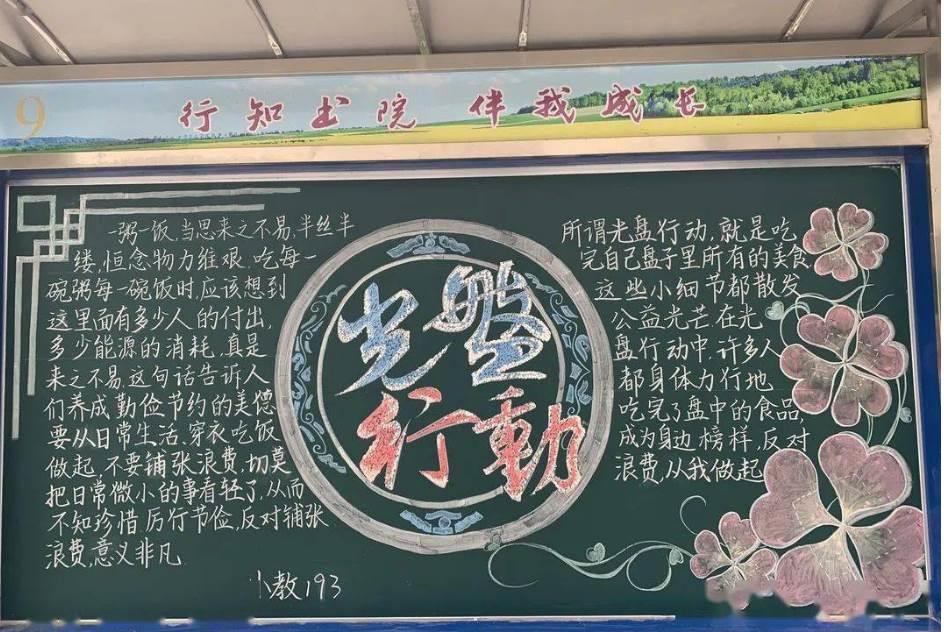 9
行知书院 伴我成长
一粥一饭,当思来之不易,半丝半
缕,恒念物力维艰.吃每一
碗粥每一碗饭时,应该想到
这里面有多少人的付出,
多少能源的消耗,真是
来之不易.这句话告诉人
们养成勤俭节约的美德
要从日常生活.穿衣吃饭
做起,不要铺张浪费,切莫
把日常微小的事看轻了,从而
不知珍惜.厉行节俭,反对铺张
浪费,意义非凡.
小教193
光盘
行動
所谓光盘行动,就是吃
完自己盘子里所有的美食
这些小细节都散发
公益光芒.在光
盘行动中,许多人
都身体力行地
吃完了盘中的食品,
成为身边榜样,反对
浪费,从我做起